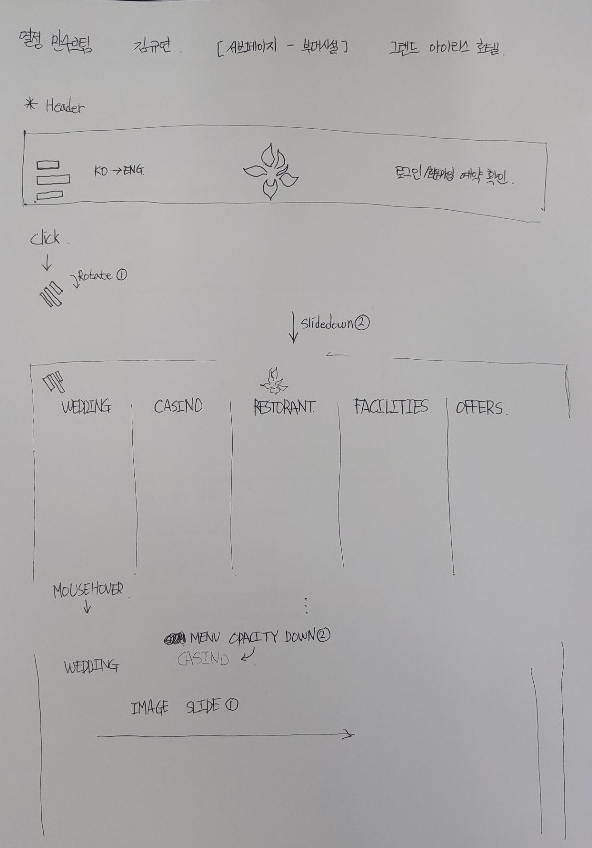 열정 만수르팀 김규연. [서브페이지 - 부대시설] 그랜드 아이리스 호텔.
* Header
KO → ENG. 로그인/ 예약 확인.
Click.
Rotate ①
Slidedown ②
WEDDING CASINO RESTORANT. FACILITIES OFFERS.
MOUSEHOVER
MENU OPACITY DOWN ②
WEDDING CASINO
IMAGE SLIDE ①